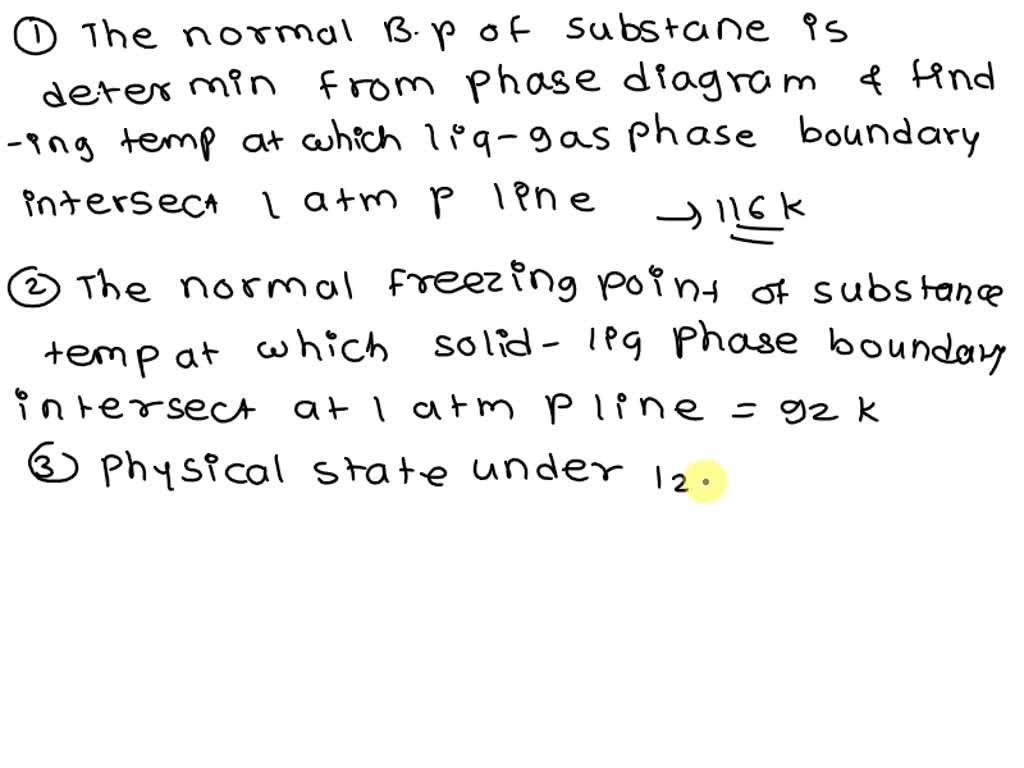 ① The normal B.p of substane is
determin from phase diagram & find
-ing temp at which liq-gas phase boundary
intersect 1 atm p line → 116 k
② The normal freezing point of substance
temp at which solid-liq phase boundary
intersect at 1 atm p line = 92 k
③ physical state under 12.